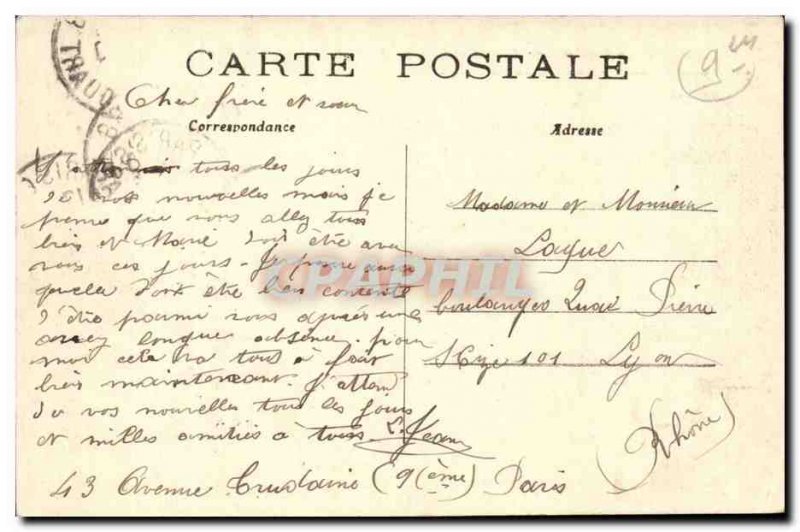 CARTE POSTALE
9
Cher frère et sœur
Correspondance
Adresse
tous les jours
de vos nouvelles mais je
pense que vous allez tous
bien et Marie doit être avec
vous ces jours. Je pense aussi
quela doit être bien contente
d'être parmi vous après une
assez longue absence. pour
moi cela va tout à fait
bien maintenant. J'attend
de vos nouvelles tous les jours
et milles amitiés à tous. Jean
43 Avenue Trudaine (9(ème) Paris
Madame et Monsieur
Laque
boulanger Quai Pierre
Scize 101 Lyon
(Rhône)
CPAPHIL